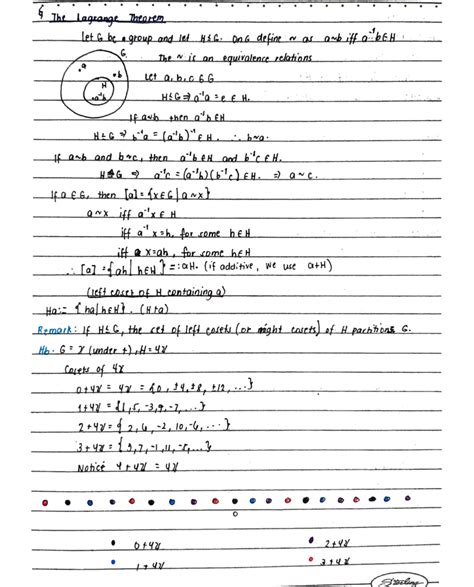 § The Lagrange Theorem
Let G be a group and let H≤G. On G define ~ as a~b iff a⁻¹b∈H
G The ~ is an equivalence relations
.a .b H .a⁻¹b Let a, b, c ∈ G
H≤G ⇒ a⁻¹a = e ∈ H.
If a~b then a⁻¹b∈H
H≤G ⇒ b⁻¹a = (a⁻¹b)⁻¹ ∈ H. ∴ b~a.
If a~b and b~c, then a⁻¹b∈H and b⁻¹c∈H.
H≤G ⇒ a⁻¹c = (a⁻¹b)(b⁻¹c) ∈ H. ⇒ a~c.
If a∈G, then [a] = {x∈G | a~x}
a~x iff a⁻¹x ∈ H
iff a⁻¹x = h, for some h∈H
iff x=ah, for some h∈H
∴ [a] = {ah | h∈H} =: aH. (if additive, we use a+H)
(left coset of H containing a)
Ha := {ha | h∈H}. (H+a)
Remark: If H≤G, the set of left cosets (or right cosets) of H partitions G.
G = ℤ (under +), H = 4ℤ
Cosets of 4ℤ
0+4ℤ = 4ℤ = {0, ±4, ±8, ±12, ...}
1+4ℤ = {1, 5, -3, 9, -7, ...}
2+4ℤ = {2, 6, -2, 10, -6, ...}
3+4ℤ = {3, 7, -1, 11, -5, ...}
Notice 4+4ℤ = 4ℤ
0
0+4ℤ 2+4ℤ
1+4ℤ 3+4ℤ